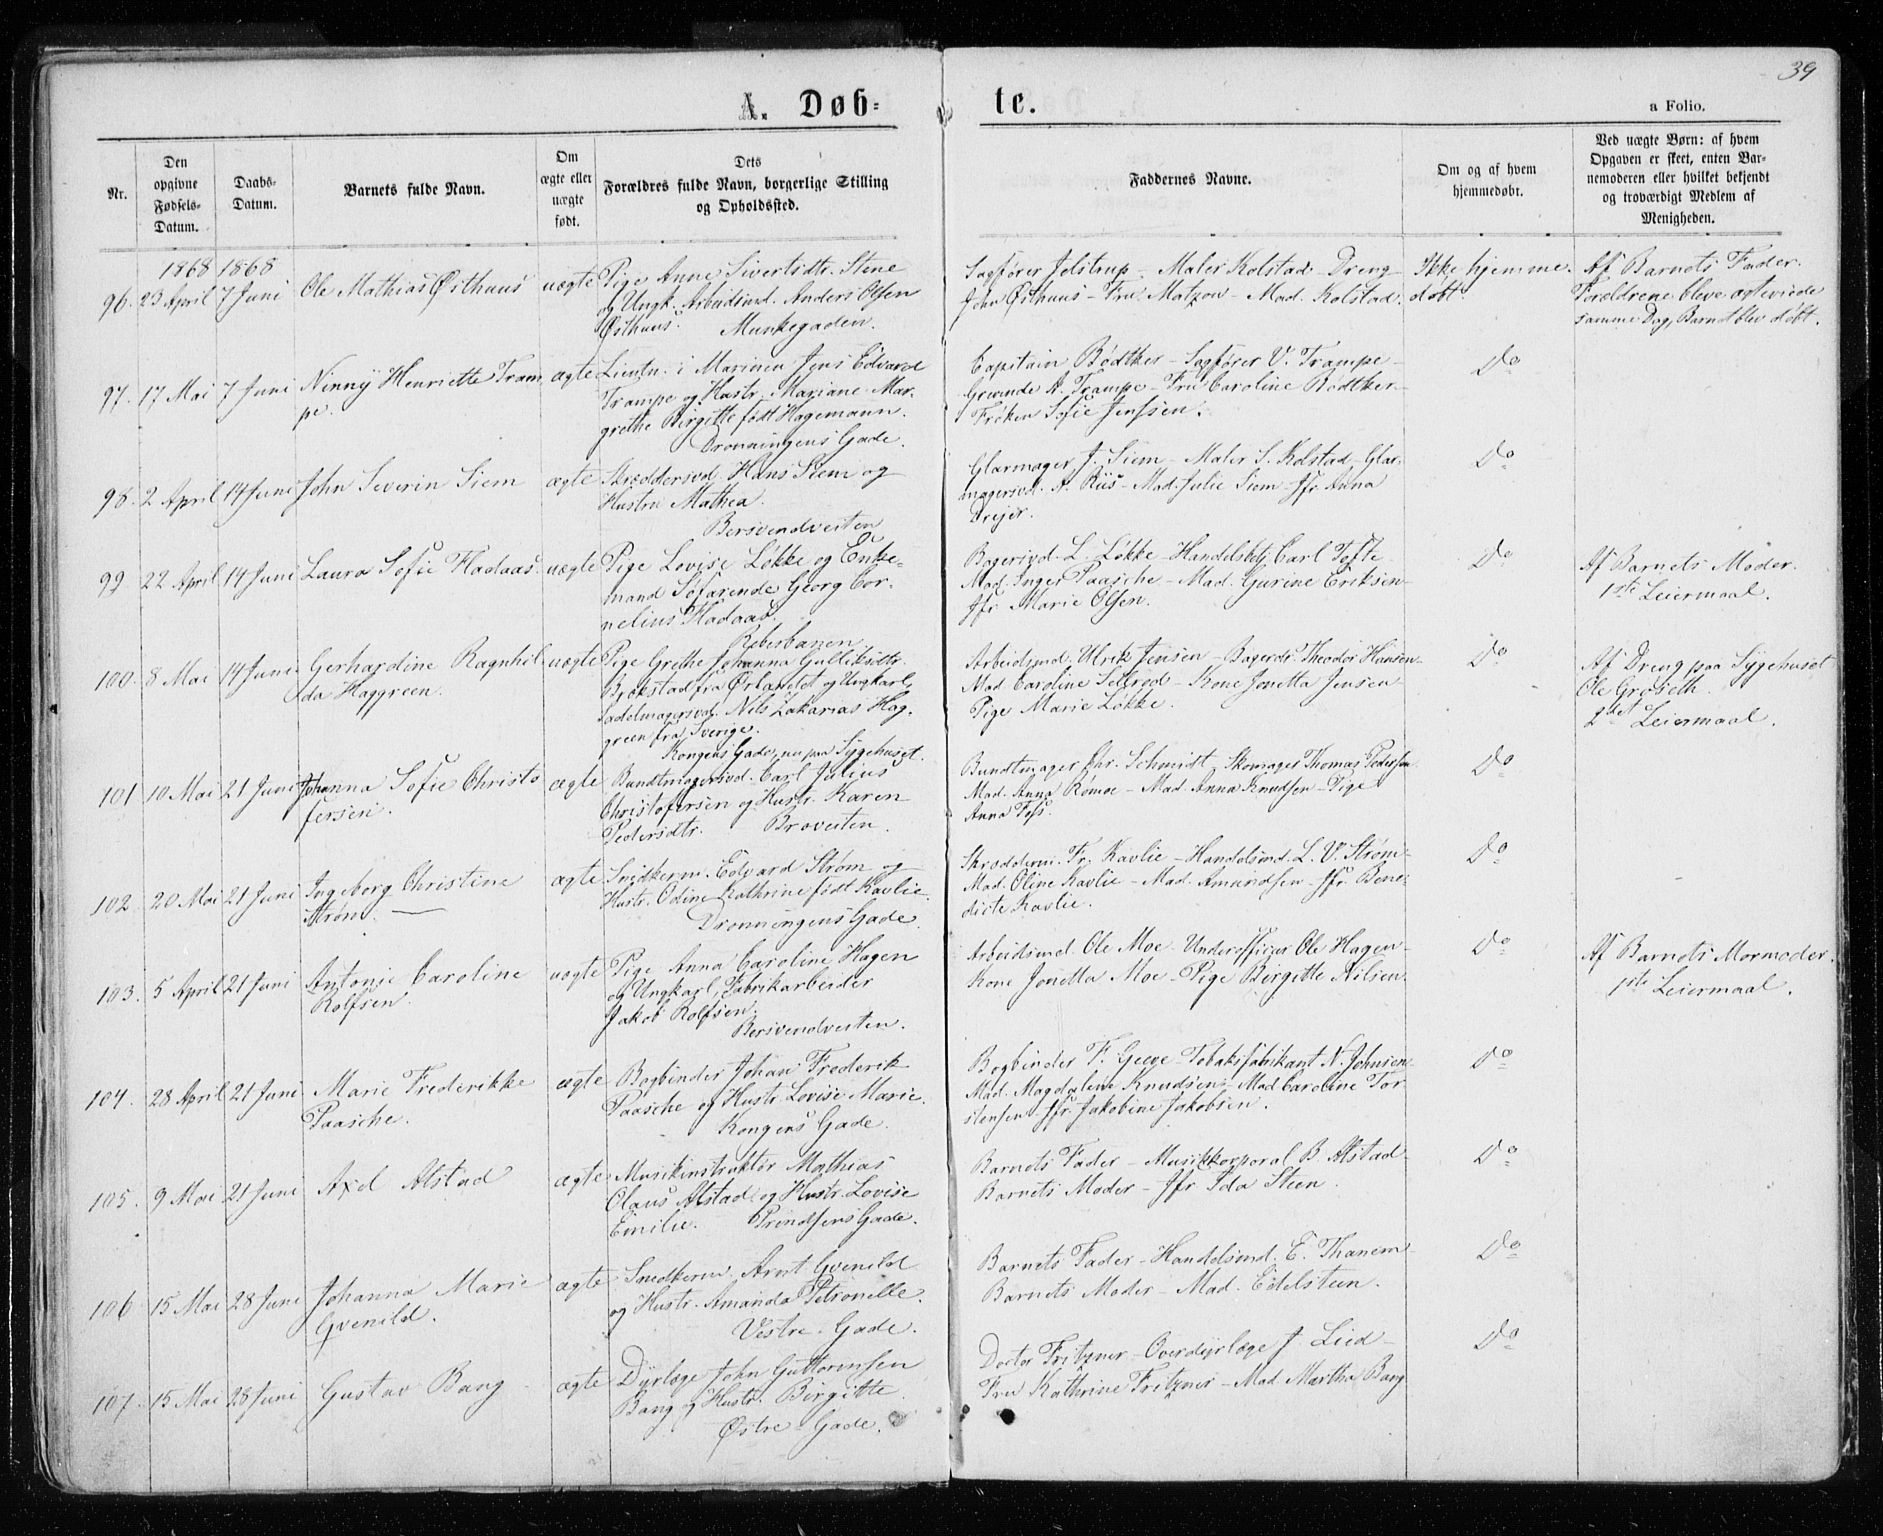 39
A. Døbte.
a Folio.
Nr.
Den opgivne Fødsels-Datum.
Daabs-Datum.
Barnets fulde Navn.
Om ægte eller uægte født.
Dets Forældres fulde Navn, borgerlige Stilling og Opholdssted.
Faddernes Navne.
Om og af hvem hjemmedøbt.
Ved uægte Børn: af hvem Opgaven er skeet, enten Barnemoderen eller hvilket bekjendt og troværdigt Medlem af Menigheden.
1868 1868
96. 23 April 7 Juni Ole Mathias Østhuus uægte
Pige Anne Sivertsdtr. Stene
og Ungk. Arbeidsmd. Anders Olsen
Østhuus. Munkegaden.
Sagfører Jelstrup - Maler Kolstad - Dreng
John Østhuus - Fru Matzow - Mad. Kolstad.
Ikke hjemme-
døbt.
Af Barnets Fader.
Forældrene bleve egteviede
samme Dag, Barnet blev døbt.
97. 17 Mai 7 Juni Ninny Henriette Tram
pe.
ægte
Lieutn. i Marinen Jens Edvard
Trampe og Hustr. Mariane Mar-
grethe Birgitte født Hagemann.
Dronningens Gade.
Capitain Bødtker - Sagfører V. Trampe -
Grevinde A. Trampe - Fru Caroline Bødtker -
Frøken Sofie Jenssen.
Do
98. 2 April 14 Juni John Severin Siem ægte
Skræddersvd. Hans Siem og
Hustru Mathea.
Bersvendveiten
Glarmager J. Siem - Maler S. Kolstad - Glar-
magersvd. A. Riis - Mad. Julie Siem - Jfr. Anna
Drejer.
Do
99. 22 April 14 Juni Laura Sofie Fladaas. uægte
Pige Lovise Løkke og Enke-
mand Søfarende Georg Cor-
nelius Fladaas.
Reberbanen.
Bagersvd. L. Løkke - Handelsbetj. Carl Tofte
Mad. Inger Paasche - Mad. Gurine Eriksen
Jfr. Marie Olsen.
Do
Af Barnets Moder.
1ste Leiermaal.
100. 8 Mai 14 Juni Gerhardine Ragnhil-
da Haggreen.
uægte
Pige Grethe Johanna Gulliksdtr.
Brækstad fra Ørlandet og Ungkarl,
Sadelmagersvd. Nils Zakarias Hag-
green fra Sverige.
Kongens Gade, nu paa Sygehuset.
Arbeidsmd. Ulrik Jensen - Bagerdr. Theodor Hansen
Mad. Caroline Selrod - Kone Jonetta Jensen
Pige Marie Løkke.
Do
Af Dreng paa Sygehuset
Ole Groseth.
2det Leiermaal.
101 10 Mai 21 Juni Johanna Sofie Christo
fersen.
ægte
Bundtmagersvd. Carl Julius
Christofersen og Hustr. Karen
Pedersdtr. Broveiten.
Bundtmager Chr. Schmidt - Skomager Thomas Pedersen
Mad. Anna Rømoe - Mad. Anna Knudsen - Pige
Anna Foss.
Do
102. 20 Mai 21 Juni Ingeborg Christine
Strøm.
ægte
Snedkerm. Edvard Strøm og
Hustr. Odine Kathrine født Kavlie.
Dronningens Gade.
Skrædderm. Fr. Kavlie - Handelsmd. L. V. Strøm -
Mad. Oline Kavlie - Mad. Amundsen - Jfr. Bene-
dicte Kavlie.
Do
103. 5 April 21 Juni Antonie Caroline
Rolfsen.
uægte
Pige Anna Caroline Hagen
og Ungkarl, Fabrikarbeider
Jakob Rolfsen.
Bersvendveiten.
Arbeidsmd. Ole Moe - Underofficer Ole Hagen -
Kone Jonetta Moe - Pige Birgitte Nilsen.
Do
Af Barnets Mormoder.
1ste Leiermaal.
104. 28 April 21 Juni Marie Frederikke
Paasche.
ægte
Bogbinder Johan Frederik
Paasche og Hustr. Lovise Marie.
Kongens Gade.
Bogbinder F. Geeve - Tobaksfabrikant N. Johnsen
Mad. Magdalene Knudsen - Mad. Caroline Tor-
stensen - Jfr. Jakobine Jakobsen.
Do
105. 9 Mai 21 Juni Axel Alstad ægte
Musikinstruktør Mathias
Olaus Alstad og Hustr. Lovise
Emilie. Prindsens Gade.
Barnets Fader - Musikkorporal B. Alstad
Barnets Moder - Jfr. Ida Steen.
Do
106. 15 Mai 28 Juni Johanna Marie
Gvenild.
ægte
Snedkerm. Arnt Gvenild
og Hustr. Amanda Petronelle.
Vestre Gade.
Barnets Fader - Handelsmd. E. Thanem
Barnets Moder - Mad. Edelsteen.
Do
107. 15 Mai 28 Juni Gustav Bang ægte
Dyrlæge John Guttormsen
Bang og Hustr. Birgitte
Østre Gade.
Doctor Fritzner - Overdyrlæge J. Lied -
Fru Kathrine Fritzner - Mad. Martha Bang
Do